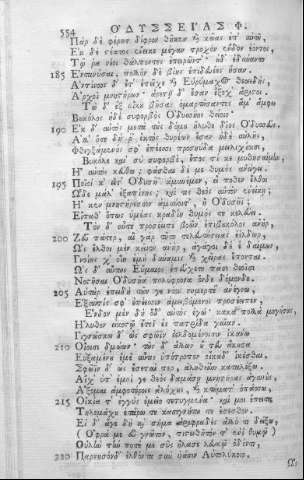 554 ΟΔΥΣΣΕΙΑΣ Φ.
Πὰρ δὲ φέρων δίφρον θῆκεν κ κῶας ἐπ' αὐτῷ,
Ἐκ δὲ στέατος ἔνεικε μέγαν τροχὸν ἔνδον ἐόντος
Τῷ ῥα νέοι θάλποντες ἐπειρῶντ'· οὐδ' ἐδύναντο
185 Ἐντανύσαι, πολλὸν δὲ βίης ἐπιδευέες ἦσαν.
Ἀντίνοος δ' ἔτ' ἐπεῖχε κ Εὐρύμαχος θεοειδής,
Ἀρχοὶ μνηστήρων· ἀρετῇ δ' ἔσαν ἔξοχ' ἄριστοι.
Τὼ δ' ἐξ οἴκου βῆσαν ὁμαρτήσαντες ἅμ' ἄμφω
Βουκόλος ἠδὲ συφορβὸς Ὀδυσσῆος θείοιο·
190 Ἐκ δ' αὐτὸς μετὰ τοὺς δόμου ἤλυθε δῖος Ὀδυσσεύς.
Ἀλλ' ὅτε δή ῥ' ἐκτὸς θυρέων ἔσαν ἠδὲ αὐλῆς,
Φθεγξάμενός σφ' ἐπέεσσι προσηύδα μειλιχίοισι,
Βουκόλε καὶ σὺ συφορβέ, ἔπος τί κε μυθησαίμην,
Ἢ αὐτὸς κεύθω; φάσθαι δέ με θυμὸς ἀνώγει.
195 Ποῖοί κ' εἶτ' Ὀδυσῆϊ ἀμυνέμεν, εἴ ποθεν ἔλθοι
Ὧδε μάλ' ἐξαπίνης, καί τις θεὸς αὐτὸν ἐνείκῃ;
Ἤ κεν μνηστήρεσσιν ἀμύνοιτ', ἢ Ὀδυσῆϊ;
Εἴπαθ' ὅπως ὑμέας κραδίη θυμός τε κελεύει.
Τὸν δ' αὖτε προσέειπε βοῶν ἐπιβουκόλος ἀνήρ,
200 Ζεῦ πάτερ, αἲ γὰρ τοῦτο τελευτήσειας ἐέλδωρ,
Ὡς ἔλθοι μὲν κεῖνος ἀνήρ, ἀγάγοι δέ ἑ δαίμων,
Γνοίης χ' οἵη ἐμὴ δύναμις κ χεῖρες ἕπονται.
Ὣς δ' αὔτως Εὔμαιος ἐπεύχετο πᾶσι θεοῖσι
Νοστῆσαι Ὀδυσῆα πολύφρονα ὅνδε δόμονδε.
205 Αὐτὰρ ἐπειδὴ τῶν γε νόον νημερτέ' ἀνέγνω,
Ἐξαῦτίς σφ' ἐπέεσσιν ἀμειβόμενος προσέειπεν,
Ἔνδον μὲν δὴ ὅδ' αὐτὸς ἐγώ· κακὰ πολλὰ μογήσας,
Ἤλυθον εἰκοστῷ ἔτεϊ ἐς πατρίδα γαῖαν.
Γιγνώσκω δ' ὡς σφῶϊν ἐελδομένοισιν ἱκάνω
210 Οἴοισι δμώων· τῶν δ' ἄλλων οὔ τευ ἄκουσα
Εὐξαμένου ἐμὲ αὖτις ὑπότροπον οἴκαδ' ἱκέσθαι.
Σφῶϊν δ' ὡς ἔσεταί περ, ἀληθείην καταλέξω.
Αἴ χ' ὑπ' ἐμοί γε θεὸς δαμάσῃ μνηστῆρας ἀγαυούς,
Ἄξομαι ἀμφοτέροις ἀλόχους, κ κτήματ' ὀπάσσω,
215 Οἰκία τ' ἐγγὺς ἐμεῖο τετυγμένα· καί μοι ἔπειτα
Τηλεμάχου ἑτάρω τε κασιγνήτω τε ἔσεσθον.
Εἰ δ' ἄγε δὴ κ σῆμα ἀριφραδὲς ἄλλο τι δείξω,
(Ὄφρα με εὖ γνῶτον, πιστωθῆτόν τ' ἐνὶ θυμῷ)
Οὐλὴν τήν ποτέ με σῦς ἤλασε λευκῷ ὀδόντι,
220 Παρνησόνδ' ἐλθόντα σὺν υἱάσιν Αὐτολύκοιο.